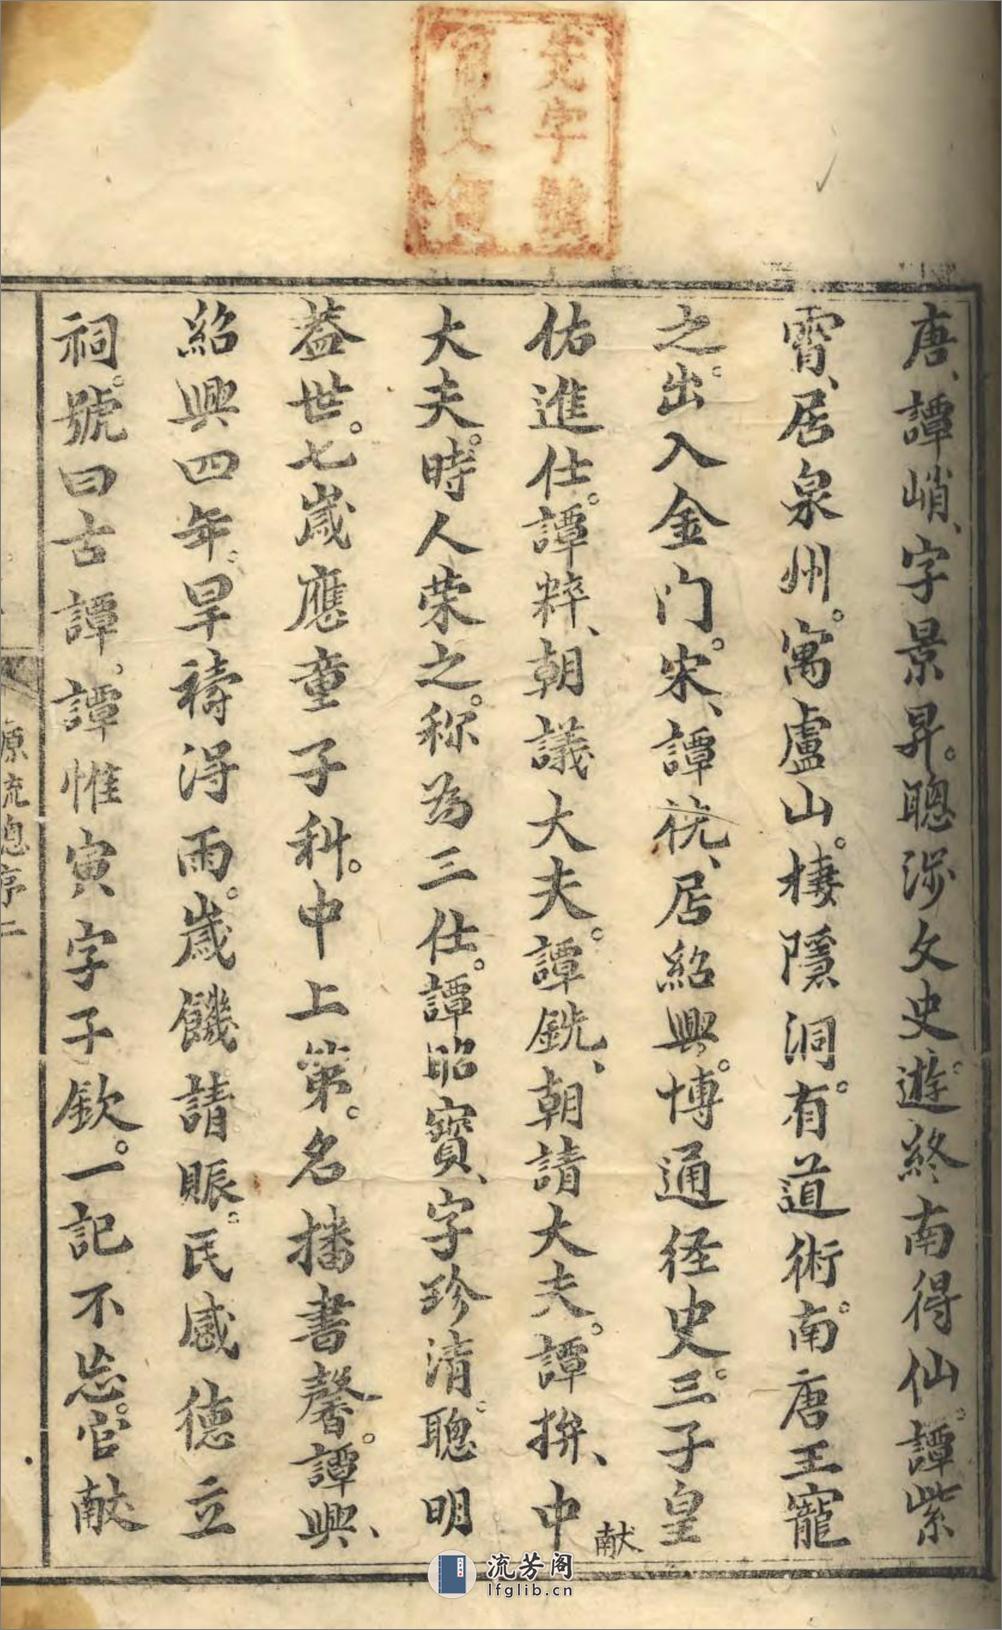 唐、譚峭、字景昇。聰涉文史。遊終南得仙。譚紫
霄、居泉州。寓盧山。棲隱洞有。道術。南唐王寵
之。出入金门。宋、譚、居紹興。博通径史。三子皇
佑進仕。譚粹、朝議大夫。譚銑、朝請大夫。譚掤、中
献
大夫。時人荣之。称為三仕。譚昭寳、字珍清。聰明
蓋世。七嵗應童子科。中上第。名播書馨。譚興、
紹興四年。旱禱淂雨。嵗饑請賑。民感徳立
祠。號曰古譚。譚惟寅字子欽。一記不忘。官献
原流總序二
流芳阁
lfglib.cn